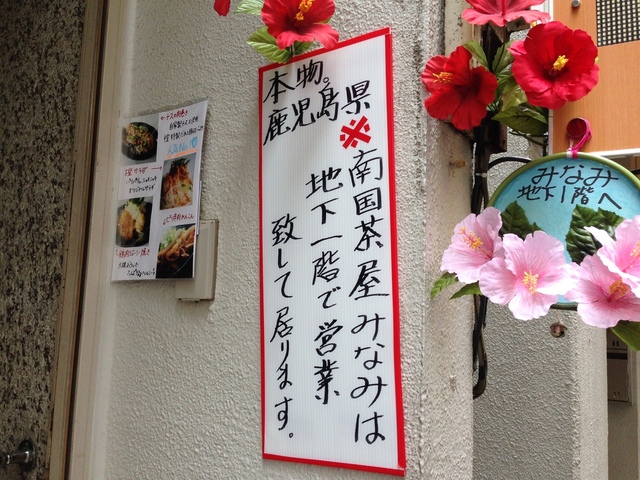 本物。
鹿児島県
※南国茶屋みなみは
地下一階で営業
致して居ります。
みなみ
地下1階へ